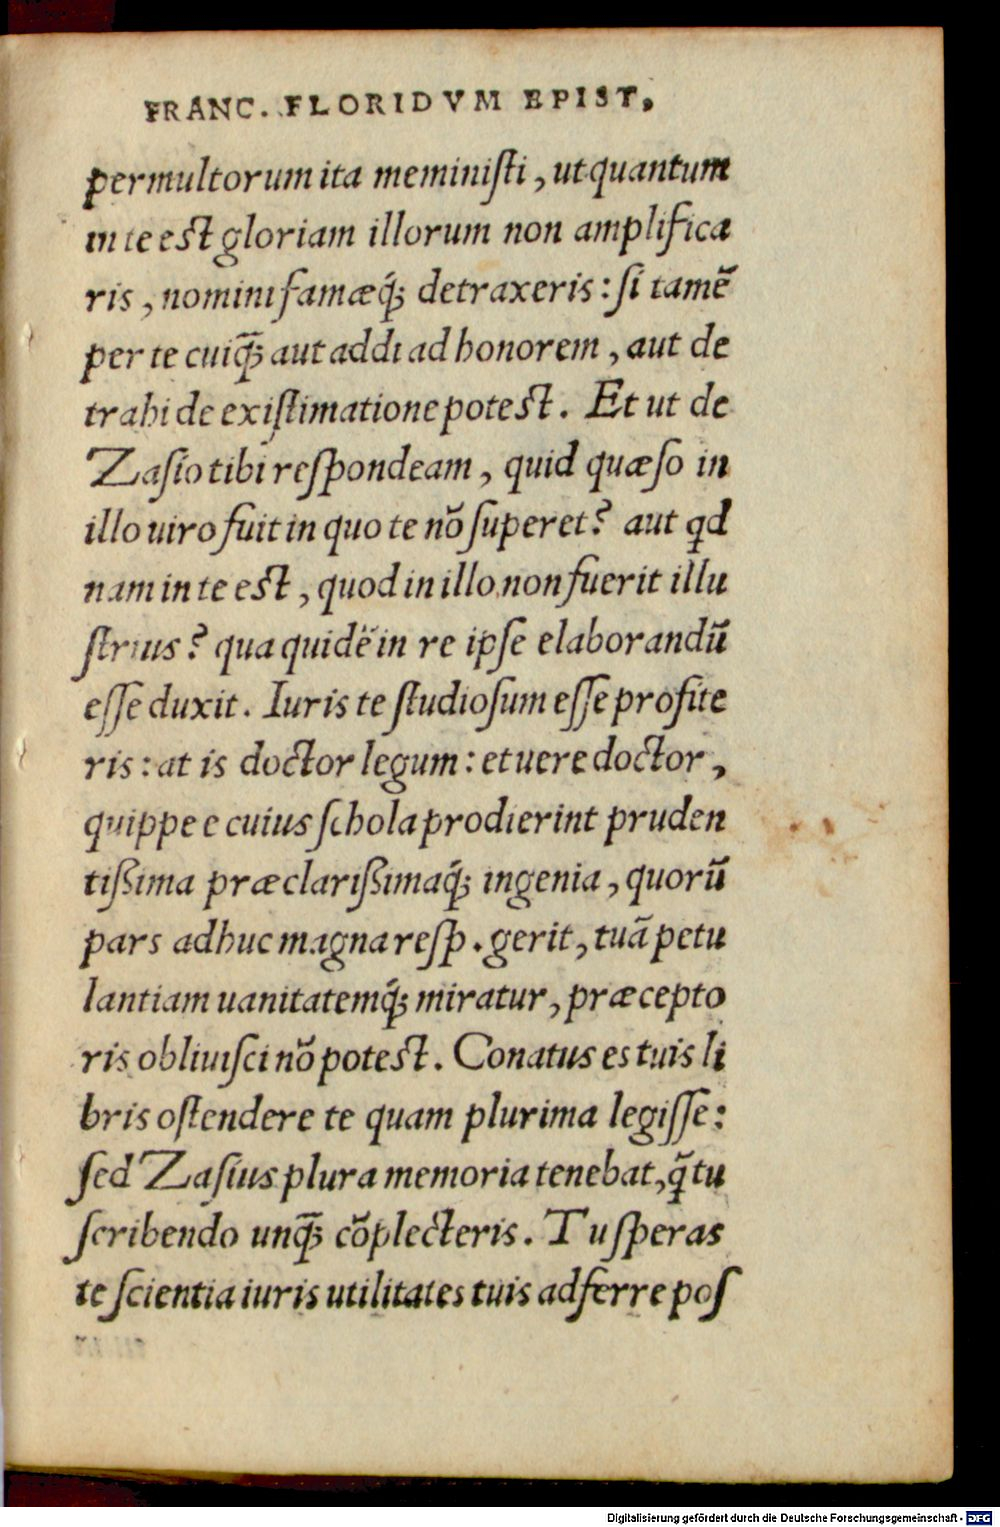 FRANC. FLORIDVM EPIST.
permultorum ita meministi, ut quantum
in te est gloriam illorum non amplifica
ris, nomini famæq́; detraxeris: si tamẽ
per te cuiq̃; aut addi ad honorem, aut de
trahi de existimatione potest. Et ut de
Zasio tibi respondeam, quid quæso in
illo uiro fuit in quo te nõ superet? aut qd
nam in te est, quod in illo non fuerit illu
strius? qua quidẽ in re ipse elaborandũ
esse duxit. Iuris te studiosum esse profite
ris: at is doctor legum: et uere doctor,
quippe e cuius schola prodierint pruden
tißima præclarißimaq́; ingenia, quorũ
pars adhuc magna resp. gerit, tuã petu
lantiam uanitatemq́; miratur, præcepto
ris obliuisci nõ potest. Conatus es tuis li
bris ostendere te quam plurima legisse:
sed Zasius plura memoria tenebat, q̃ tu
scribendo unq̃; cõplecteris. Tu speras
te scientia iuris utilitates tuis adferre pos
Digitalisierung gefördert durch die Deutsche Forschungsgemeinschaft - DFG